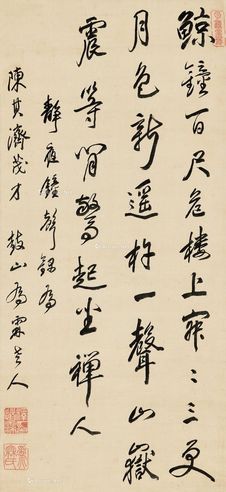 鲸鐘百尺危樓上寂〻三更
月色新遥杵一聲山嶽
震等閒驚起坐禪人
静夜鐘聲録為
陳其濟茂才 鼓山為霖老人